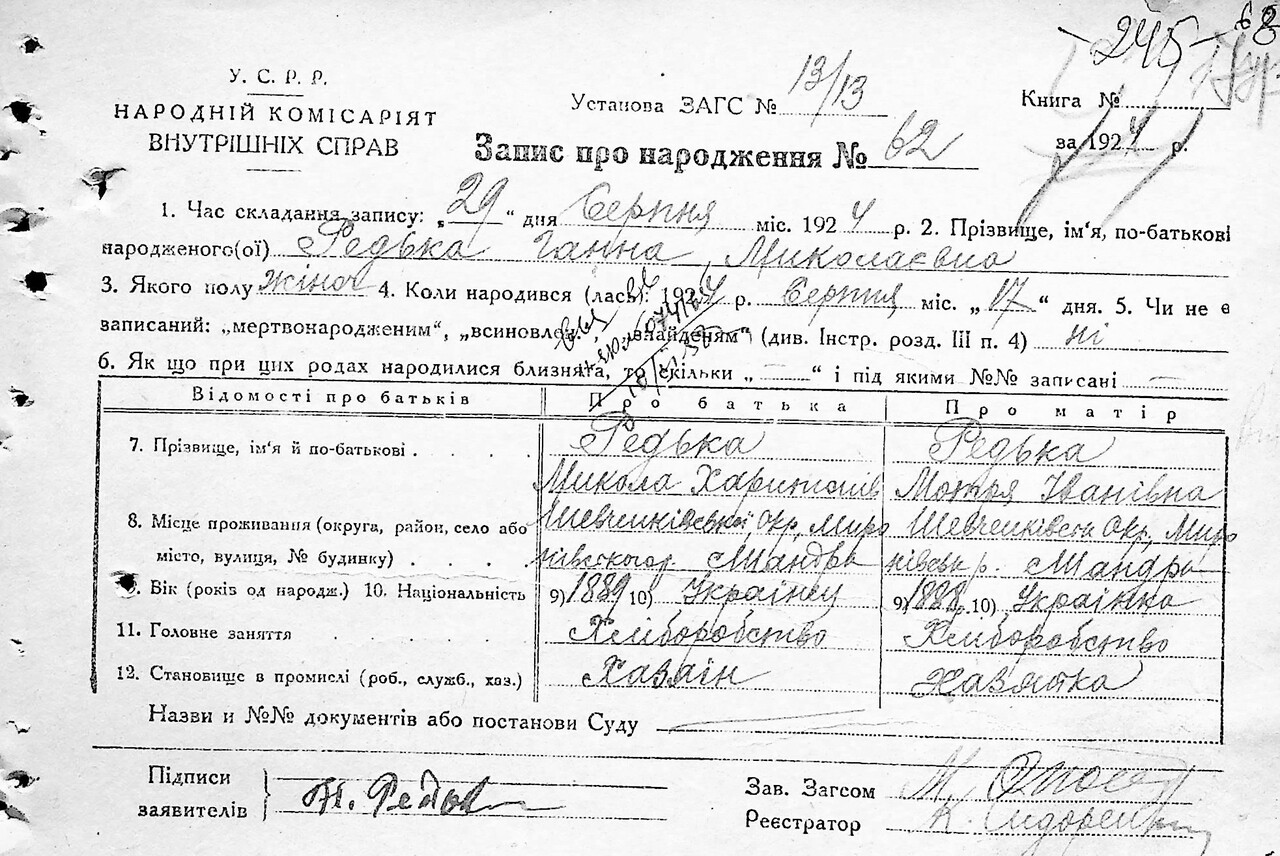 -245- 68
У. С. Р. Р.
НАРОДНІЙ КОМІСАРІЯТ
ВНУТРІШНІХ СПРАВ
Установа ЗАГС № 13/13
Книга №
за 1924 р.
Запис про народження № 62
1. Час складання запису: „29" дня Серпня міс. 1924 р. 2. Прізвище, ім'я, по-батькові
народженого(ої) Редька Ганна Миколаєвна
3. Якого полу жіноч 4. Коли народився (лась): 1924 р. Серпня міс. „17" дня. 5. Чи не є
записаний: „мертвонародженим", „всиновлен. ", „знайденям" (див. Інстр. розд. III п. 4) ні
6. Як що при цих родах народилися близнята, то скільки „ — " і під якими №№ записані —
Відомості про батьків Про батька Про матір
7. Прізвище, ім'я й по-батькові . . . . Редька Редька
Микола Харитонів Мотря Іванівна
8. Місце проживання (округа, район, село або Шевченківської Окр, Миро Шевченківськ Окр, Миро
місто, вулиця, № будинку) . . . . нівського р. нівськ р.
9. Вік (років од народж.) 10. Національність 9) 1889 10) Українец 9) 1888 р. 10) Українка
11. Головне заняття . . . . . Хліборобство Хліборобство
12. Становище в промислі (роб., служб., хаз.) Хазяін Хазяйка
Назви и №№ документів або постанови Суду
Підписи
заявителів
Зав. Загсом
Реєстратор К. Сидоренко